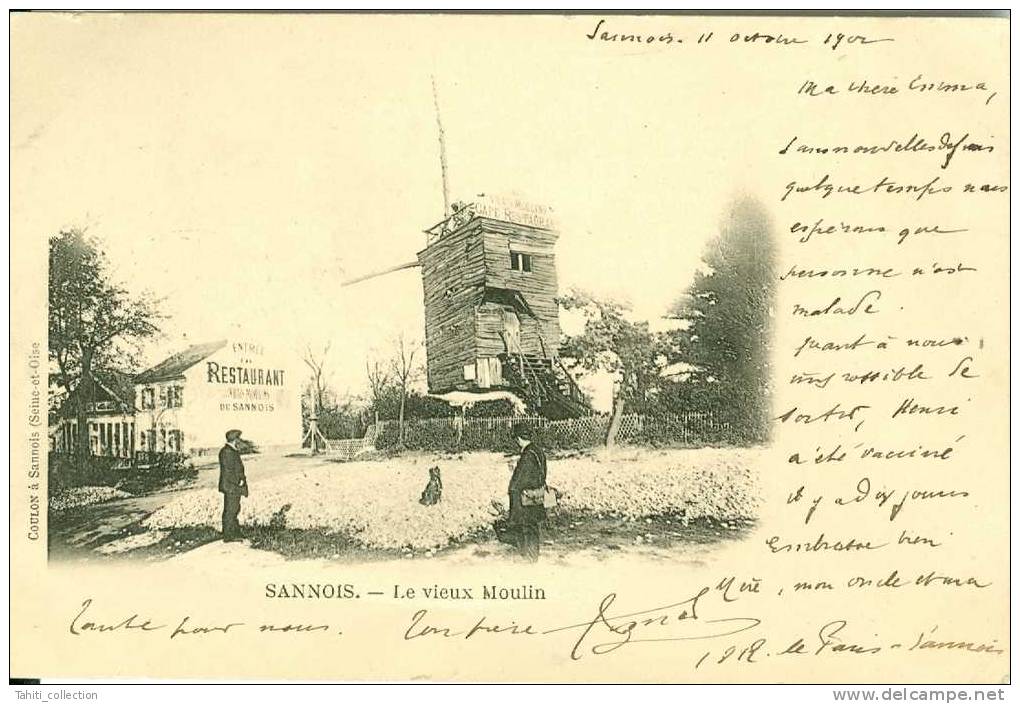 Sannois. 11 octobre 1902
Ma chère Emma,
Sans nouvelles depuis
quelque temps nous
espérons que
personne n'est
malade.
quant à nous
impossible de
sortir, Henri
a été vacciné
il y a dix jours
Embrasse bien
Mère, mon oncle et ma
tante pour nous. Ton frère
de Paris - Sannois
CAFÉ RESTAURANT
ENTRÉE
DU
RESTAURANT
VIEUX MOULIN
DE SANNOIS
COULON à Sannois (Seine-et-Oise
SANNOIS. — Le vieux Moulin
Tahiti_collection
http://www.delcampe.net